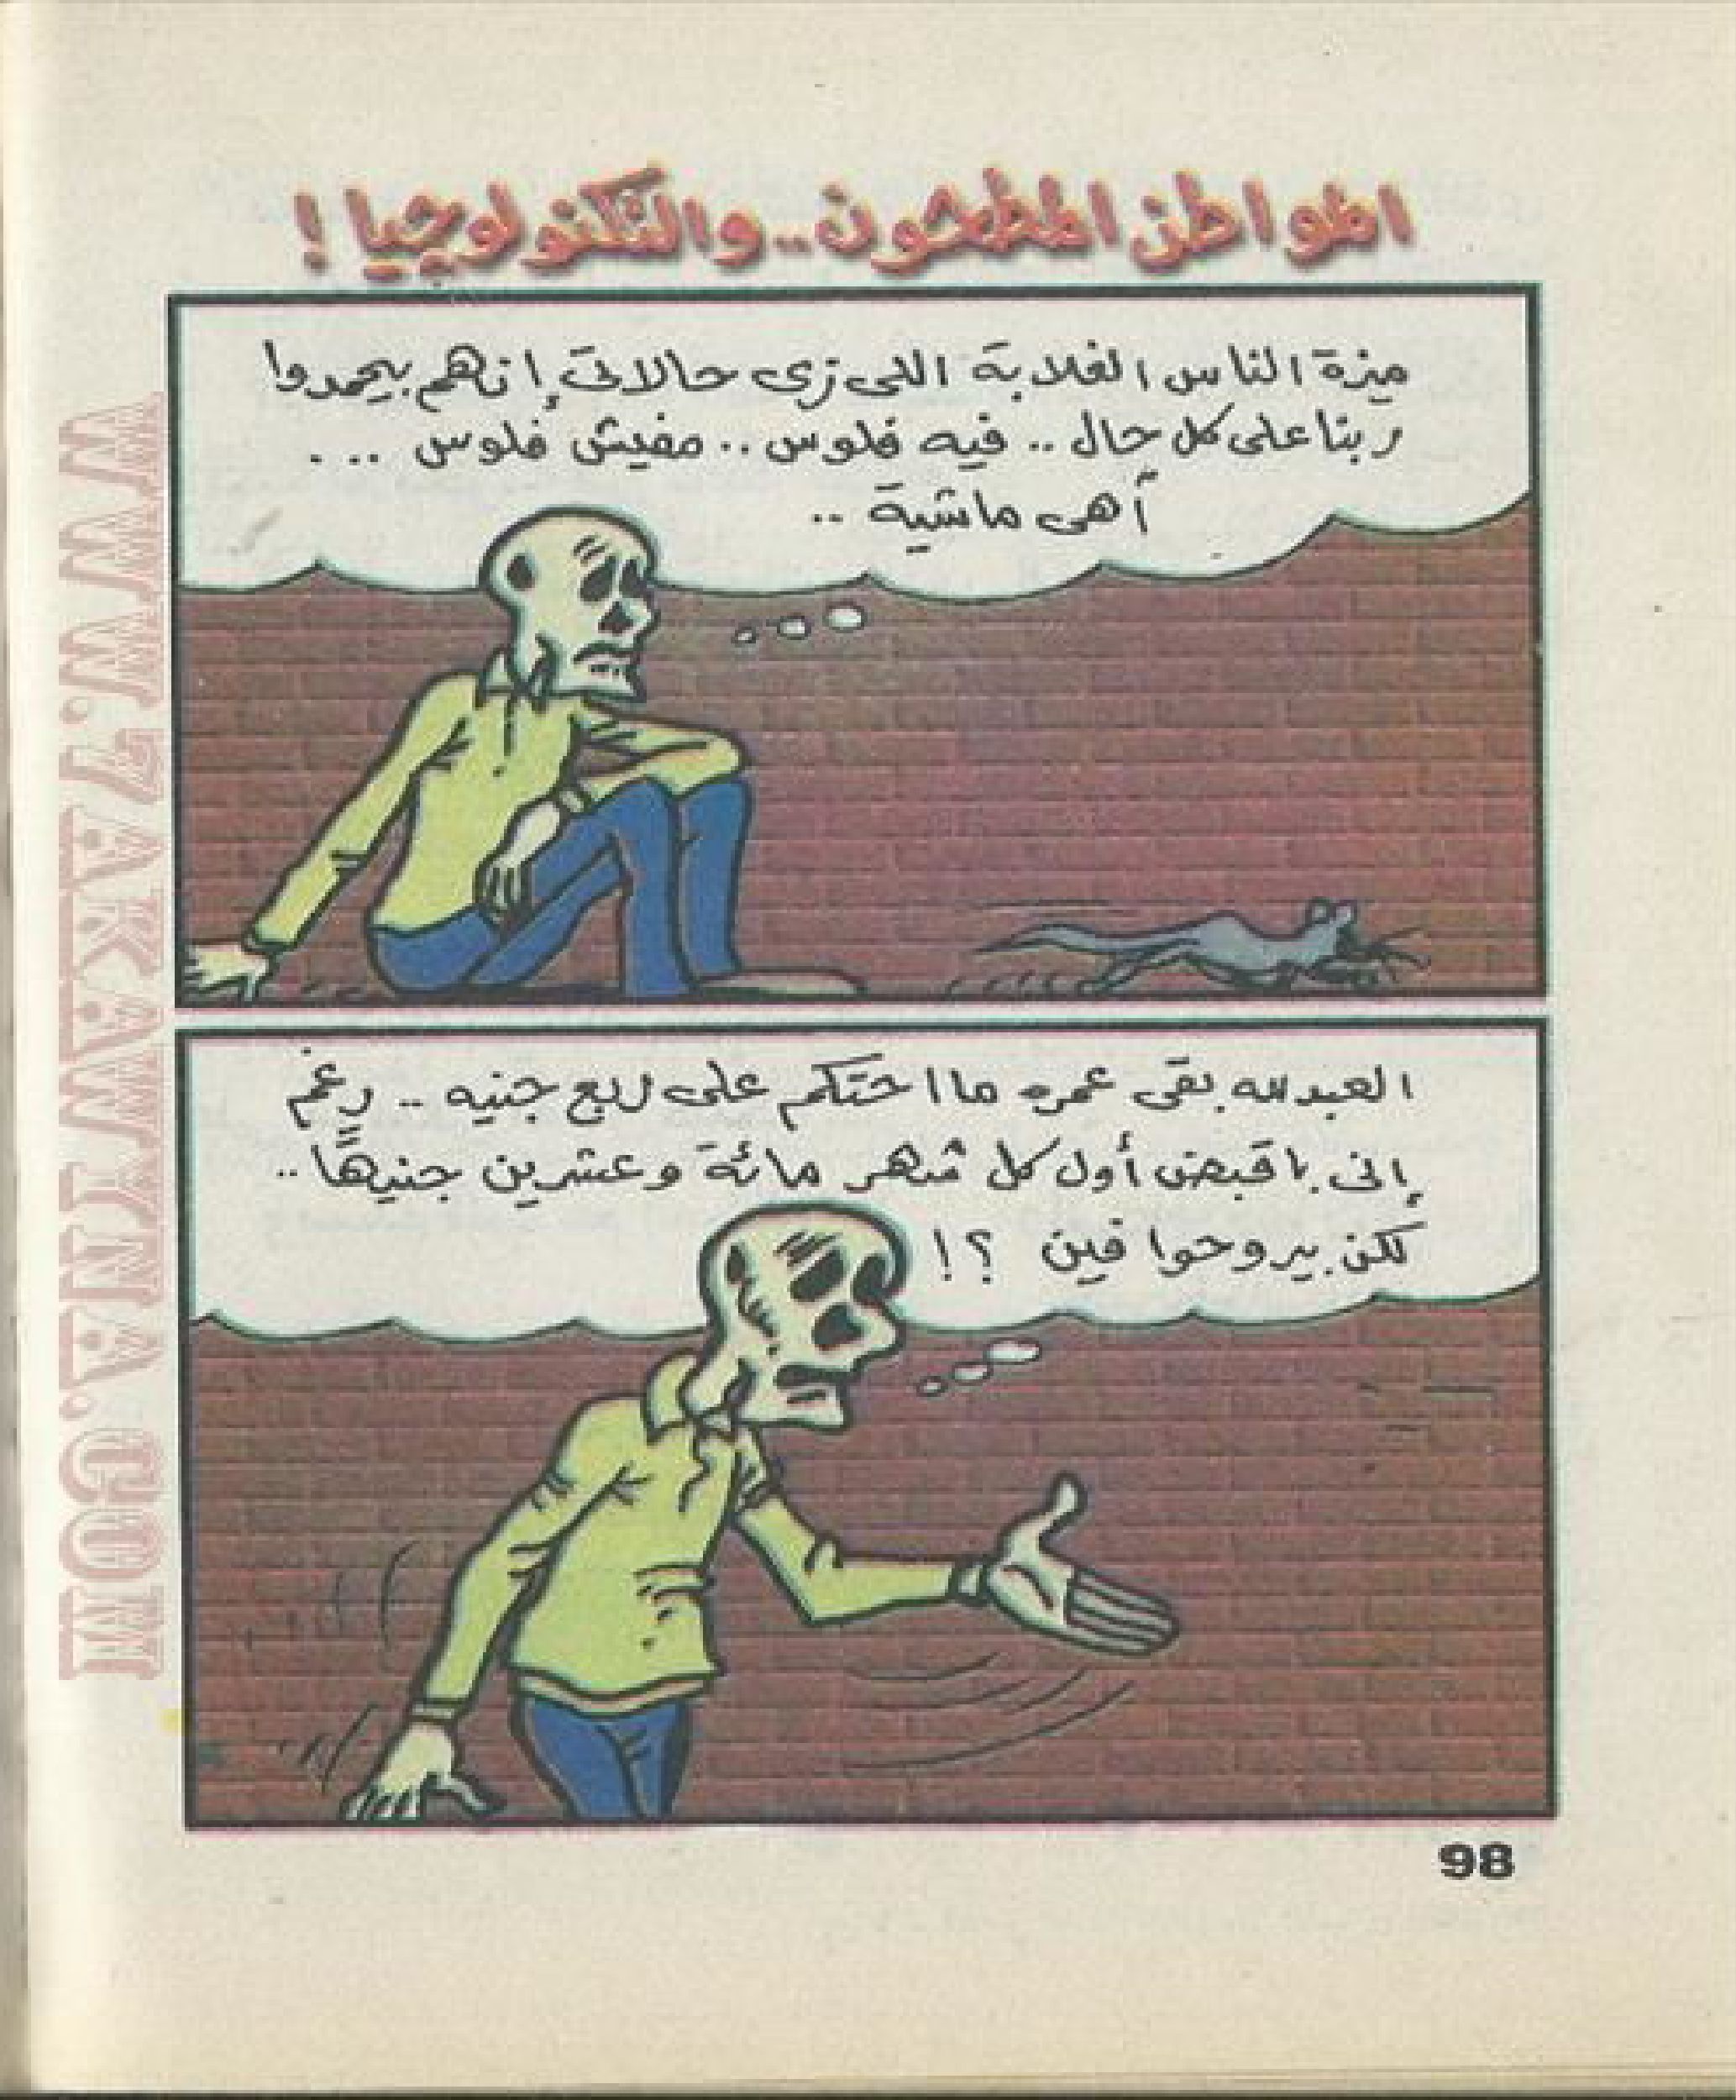 المواطن المطحون.. والتكنولوجيا !
ميزة الناس الغلابة اللى زى حالاتى إنهم بيحمدوا
ربنا على كل حال .. فيه فلوس .. مفيش فلوس ...
أهى ماشية ..
العبدلله بقى عمره ما احتكم على ربع جنيه .. رغم
إنى باقبض أول كل شهر مائة وعشرين جنيهًا ..
لكن بيروحوا فين ؟!
98
WWW.7AKAWATINA.COM